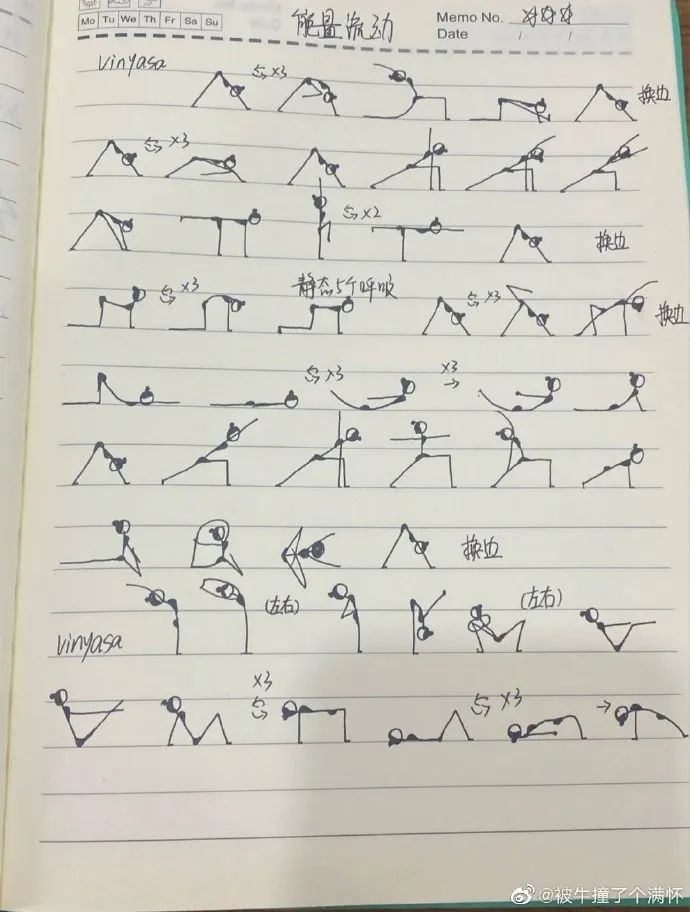 Mo Tu We Th Fr Sa Su
能量流动
Memo No.
Date / /
vinyasa
×3
换边
×3
×2
换边
×3
静态5个呼吸
×3
换边
×3
×3
换边
(左右)
(左右)
vinyasa
×3
×3
@被牛撞了个满怀